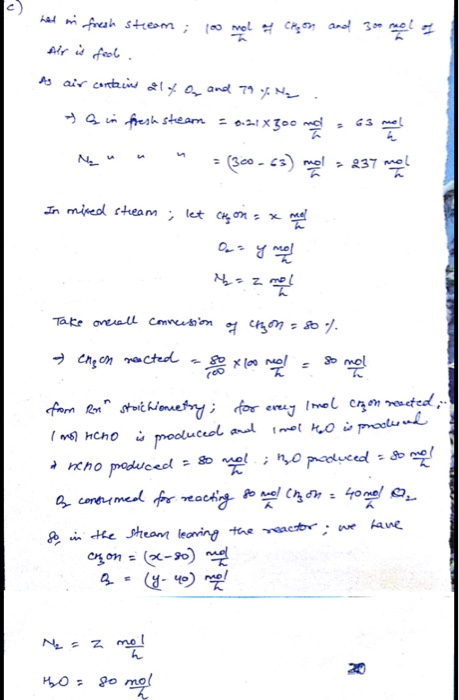 c)
Let in fresh stream ; 100 mol/h of CH3OH and 300 mol/h of
Air is feed.
As air contains 21% O2 and 79% N2.
→ O2 in fresh steam = 0.21×300 mol/h = 63 mol/h
N2 " " " = (300 - 63) mol/h = 237 mol/h
In mixed stream ; let CH3OH = x mol/h
O2 = y mol/h
N2 = z mol/h
Take overall conversion of CH3OH = 80%.
→ CH3OH reacted = 80/100 × 100 mol/h = 80 mol/h
from Rxn stoichiometry; for every 1 mol CH3OH reacted,
1 mol HCHO is produced and 1 mol H2O is produced
→ HCHO produced = 80 mol/h ; H2O produced = 80 mol/h
O2 consumed for reacting 80 mol/h CH3OH = 40 mol/h O2
So, in the stream leaving the reactor ; we have
CH3OH = (x-80) mol/h
O2 = (y-40) mol/h
N2 = z mol/h
H2O = 80 mol/h